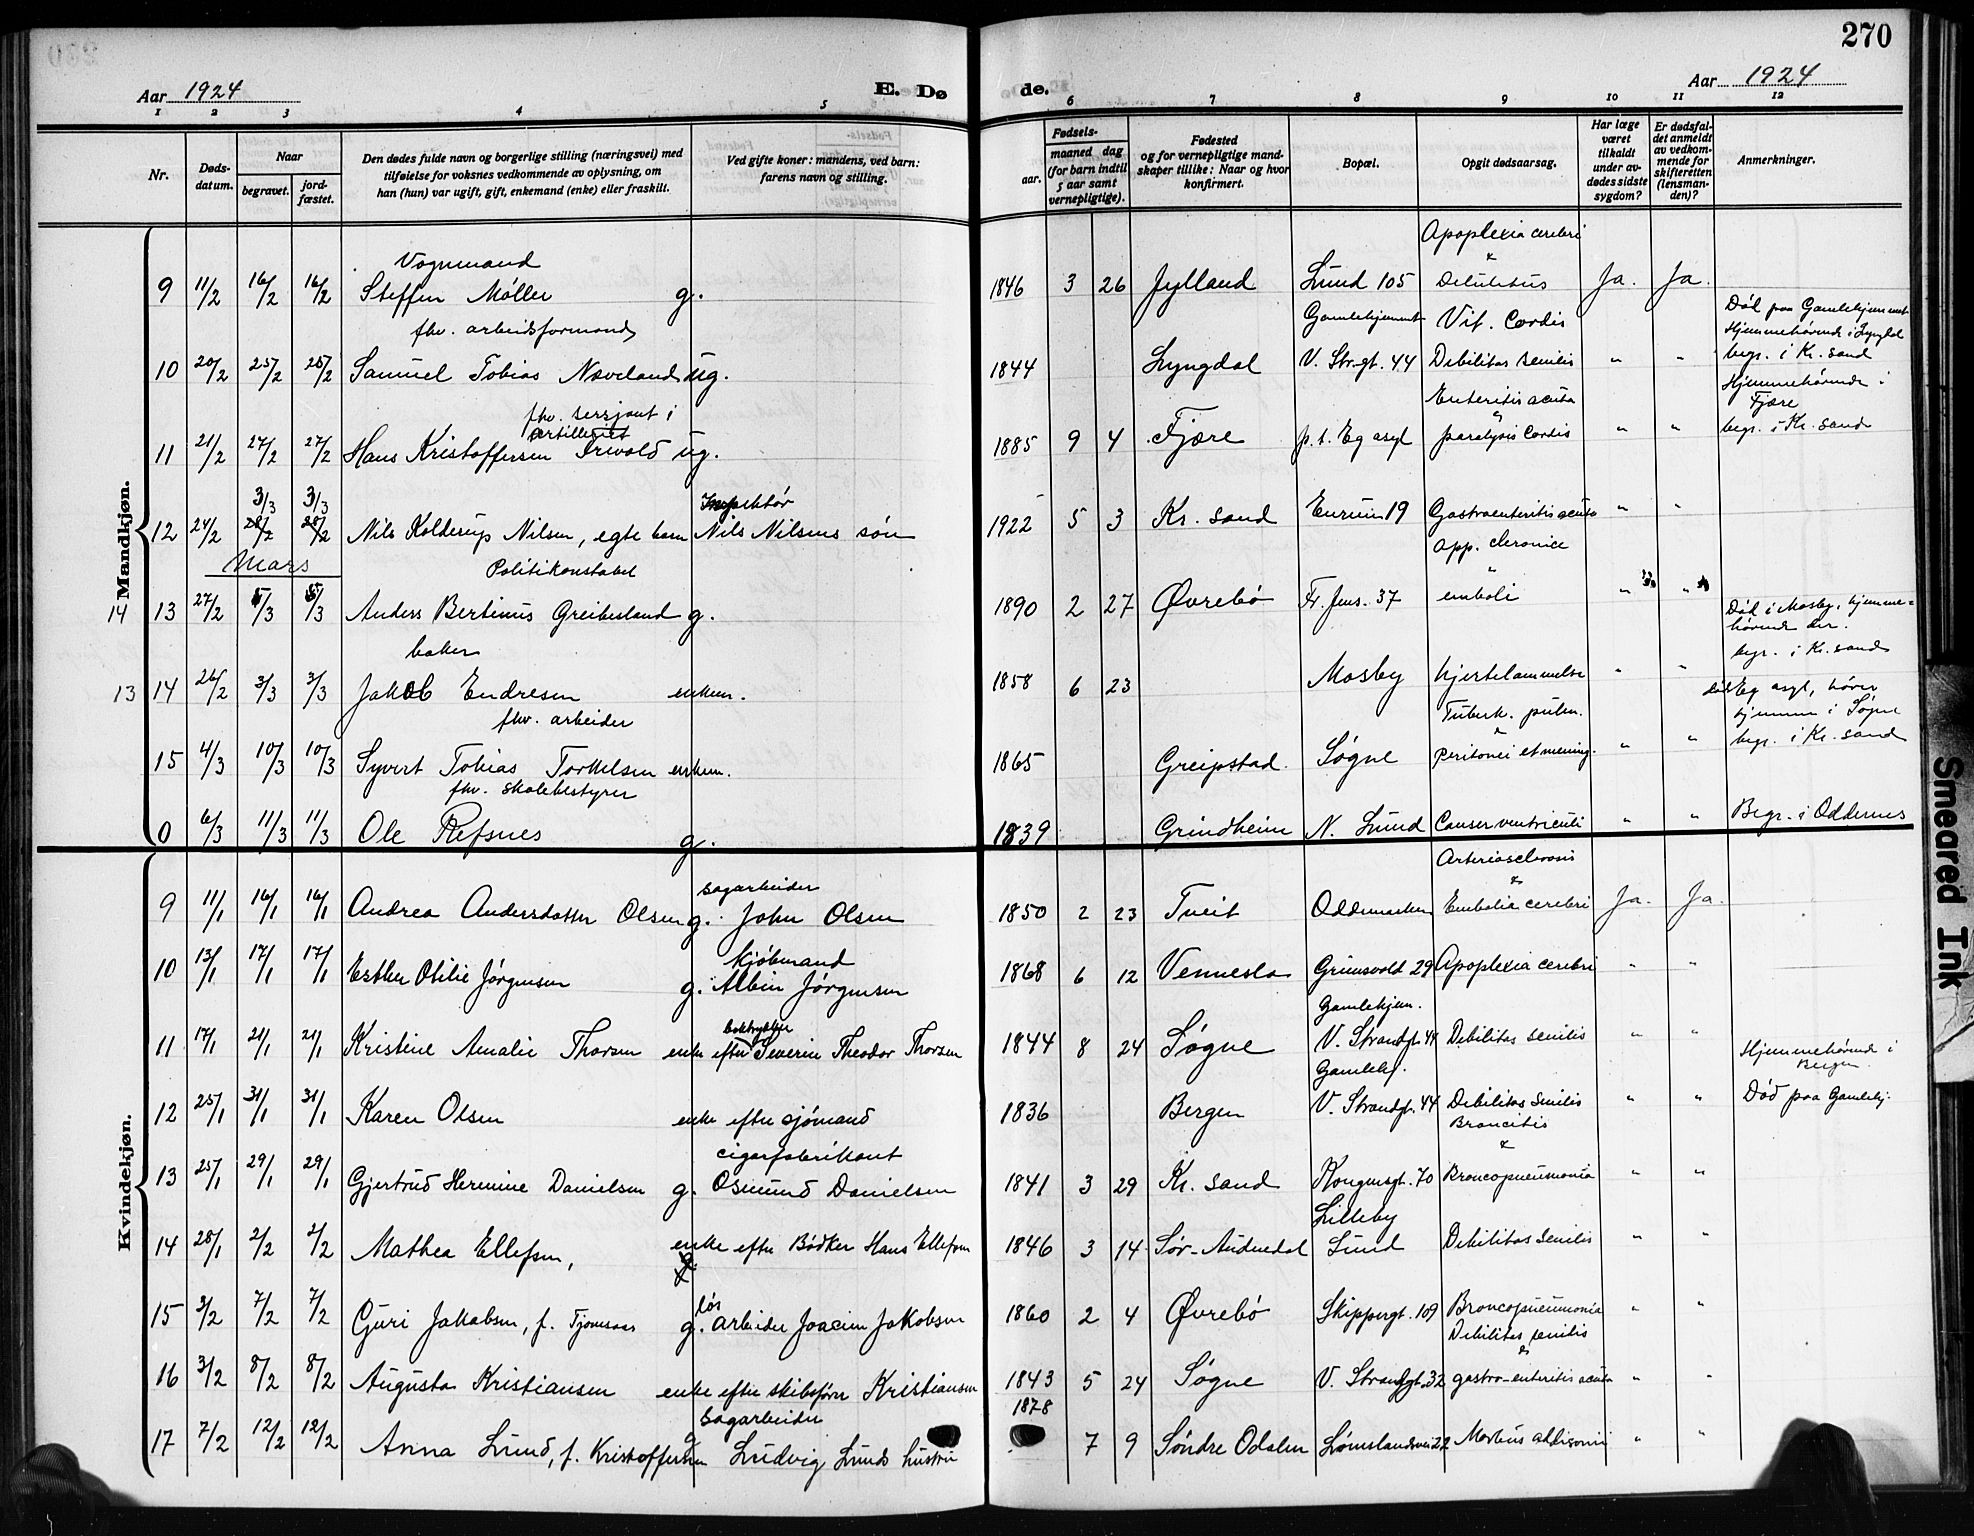 270
Aar 1924
E. Dø
de.
Aar 1924
1 2 3 4 5 6 7 8 9 10 11 12
Nr.
Døds-
datum.
Naar
begravet.
jord-
fæstet.
Den dødes fulde navn og borgerlige stilling (næringsvei) med
tilføielse for voksnes vedkommende av oplysning, om
han (hun) var ugift, gift, enkemand (enke) eller fraskilt.
Ved gifte koner: mandens, ved barn:
farens navn og stilling.
Fødsels-
aar.
maaned dag
(for barn indtil
5 aar samt
vernepligtige).
Fødested
og for vernepligtige mand-
skaper tillike: Naar og hvor
konfirmert.
Bopæl.
Opgit dødsaarsag.
Har læge
været
tilkaldt
under av-
dødes sidste
sygdom?
Er dødsfal-
det anmeldt
av vedkom-
mende for
skifteretten
(lensman-
den)?
Anmerkninger.
Mandkjøn.
Vognmand Apoplexia cerebri
9 11/2 16/2 16/2 Steffen Møller g. 1846 3 26 Jylland Lund 105 Ja. Ja.
fhv. arbeidsformand Gamlehjemmet Vit. Cordis Död paa Gamlehjemmet
Hjemmehörende i Lyngdal
10 20/2 25/2 25/2 Samuel Tobias Næveland ug. 1844 Lyngdal V. Str.gt. 44 Debilitas senilis " " begr. i Kr. sand
fhv. sersjant i Enteritis acuta Hjemmehörende i
artilleriet Fjære
11 21/2 27/2 27/2 Hans Kristoffersen ug. 1885 9 4 Fjære p. t. Eg asyl paralysis Cordis " " begr. i Kr. sand
3/3 3/3 Inspektör
12 24/2 28/2 28/2 Nils Kolderup Nilsen, egte barn Nils Nilsens sön 1922 5 3 Kr. sand 19 Gastroenteritis acuta " "
Mars Politikonstabel App. chronica
14 13 27/2 5/3 5/3 Anders Bertinus Greibesland g. 1890 2 27 Øvrebö Fr. Jens. 37 emboli " " Död i Mosby, hjemme-
hörende der.
baker
13 14 26/2 3/3 3/3 Jakob Endresen enkem. 1858 6 23 Mosby hjertelammelse " " begr. i Kr. sand
fhv. arbeider Tuberk. pulm. död Eg asyl, hörer
hjemme i Søgne
15 4/3 10/3 10/3 Syvert Tobias Torkelsen enkem. 1865 Greipstad Søgne peritonei et mening. " " begr. i Kr. sand
fhv. skolebestyrer
0 6/3 11/3 11/3 Ole Refsnes g. 1839 Grindheim N. Lund Cancer ventriculi " " Begr. i Oddernes
Kvindekjøn.
sagarbeider Arteriosclerosis
9 11/1 16/1 16/1 Andrea Andersdatter Olsen g. John Olsen 1850 2 23 Tveit Oddemarken Embolia cerebri Ja. Ja.
kjöbmand
10 13/1 17/1 17/1 Esther Otilie Jörgensen g. Albin Jörgensen 1868 6 12 Vennesla Grimsvold 29 Apoplexia cerebri " "
boktrykker Gamlehjem.
11 17/1 21/1 21/1 Kristine Amalie Thorsen enke efter Severin Theodor Thorsen 1844 8 24 Søgne V. Strandgt. 44 Debilitas senilis " "
Gamlehj. Hjemmehörende i
Bergen
12 25/1 31/1 31/1 Karen Olsen enke efter sjömand 1836 Bergen V. Strandgt. 44 Debilitas senilis " " Död paa Gamlehj.
cigarfabrikant Broncitis
&
13 25/1 29/1 29/1 Gjertrud Hermine Danielsen g. Osmund Danielsen 1841 3 29 Kr. sand Kongensgt. 70 Broncopneumonia " "
Lilleby
14 28/1 2/2 2/2 Mathea Ellefsen, enke efter Bödker Hans Ellefsen 1846 3 14 Sør-Audnedal Lund Debilitas senilis " "
lös
15 3/2 7/2 7/2 Guri Jakobsen, f. g. arbeider Joacim Jakobsen 1860 2 4 Øvrebö Skippergt. 109 Broncopneumonia " "
Debilitas senilis
&
16 3/2 8/2 8/2 Augusta Kristiansen enke efter skibsförer Kristiansen 1843 5 24 Søgne V. Strandgt. 32 gastro-enteritis acuta " "
sagarbeider 1878
17 7/2 12/2 12/2 Anna Lund, f. Kristoffersen g Ludvig Lunds hustru 7 9 Söndre Odalen Lömslandsvei 22 Morbus addisonii " "
Smeared Ink